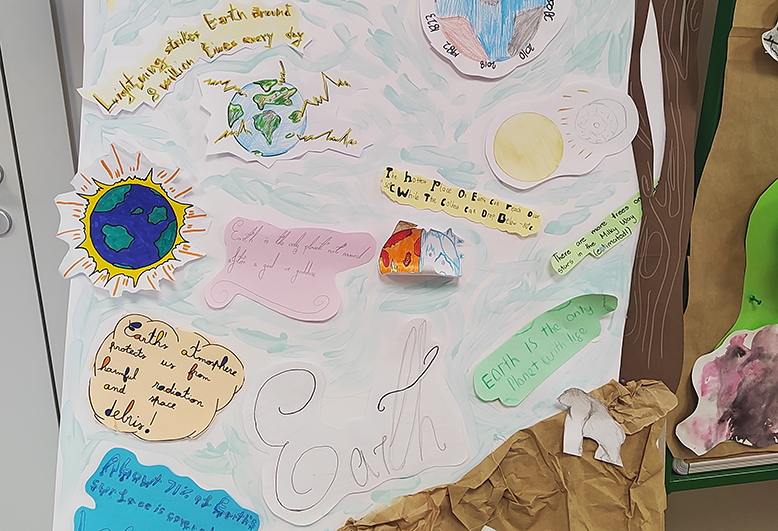 Lightning strikes Earth around
8 million times every day
The hottest Place On Earth can reach over
°C While The Coldest can Drop Below
There are more trees on
stars in the Milky Way
(estimated!)
Earth is the only planet not named
after a god or goddess
Earth is the only
Planet with life
Earth's atmosphere
protects us from
harmful radiation
and space
debris!
Earth
About 71% of Earth's
surface is covered